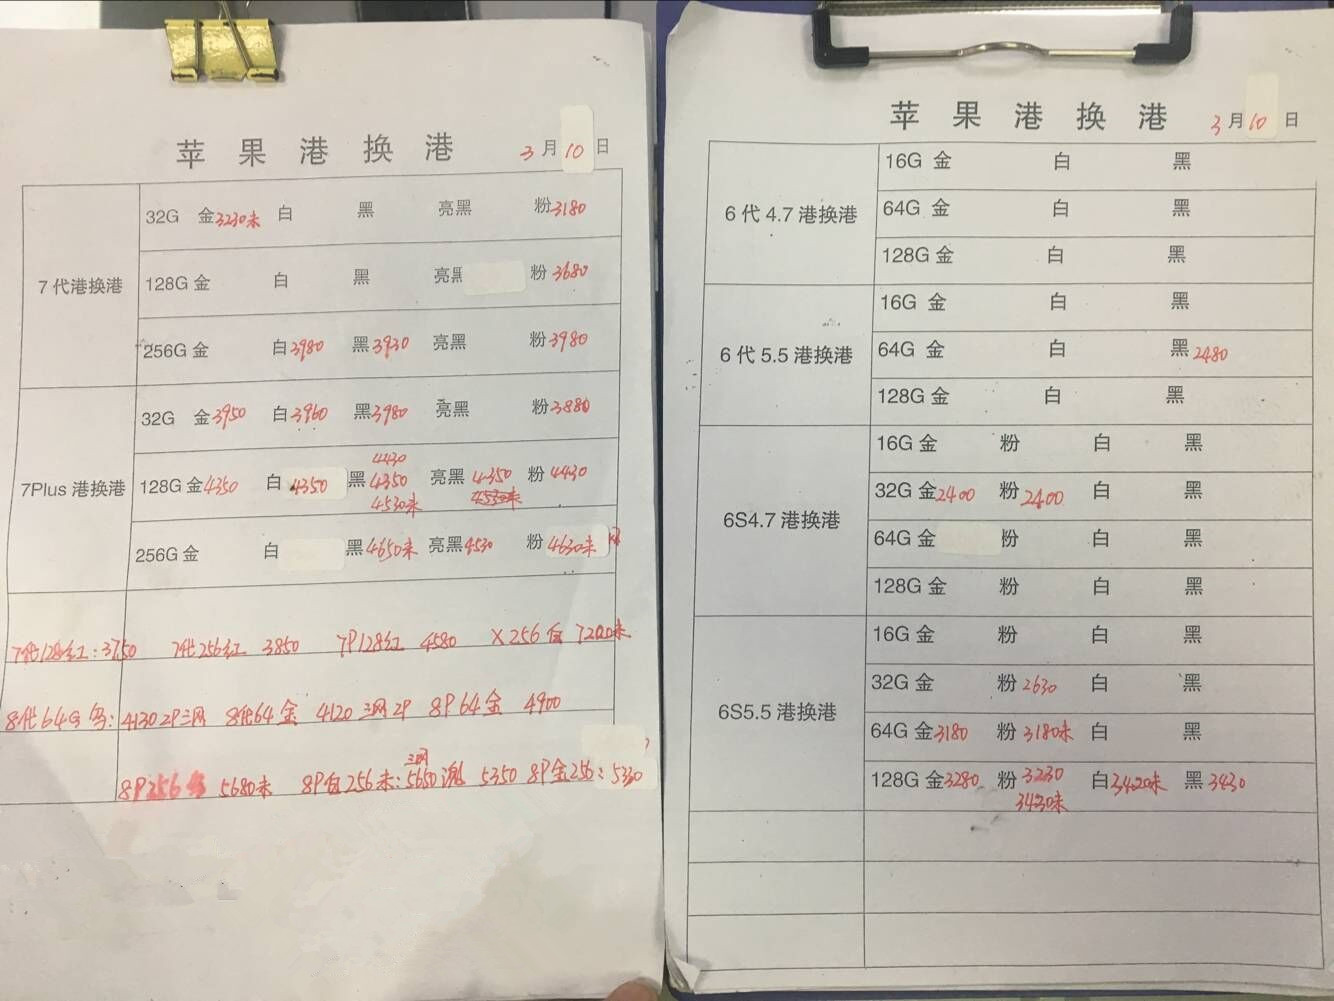 苹果港换港 3月10日
7代港换港
32G 金3230未 白 黑 亮黑 粉3180
128G金 白 黑 亮黑 粉3680
256G金 白3980 黑3930 亮黑 粉3980
7Plus港换港
32G 金3950 白3960 黑3980 亮黑 粉3880
128G金4350 白4350 黑4430 4350 4530未 亮黑4350 4530未 粉4430
256G金 白 黑4650未 亮黑4530 粉4630未
7代128红:3750 7代256红 3850 7P128红 4580 X256白 7200未
8代64G 4130 2P三网 8代64金 4120三网2P 8P64金 4900
8P256 5680未 8P白256未:三网5650 5350 8P金256:5330
苹果港换港 3月10日
6代4.7港换港
16G 金 白 黑
64G 金 白 黑
128G金 白 黑
6代5.5港换港
16G 金 白 黑
64G 金 白 黑2480
128G金 白 黑
6S4.7港换港
16G金 粉 白 黑
32G金2400 粉2400 白 黑
64G金 粉 白 黑
128G金 粉 白 黑
6S5.5港换港
16G金 粉 白 黑
32G金 粉2630 白 黑
64G金3180 粉3180未 白 黑
128G金3280 粉3230 3430未 白3420未 黑3430